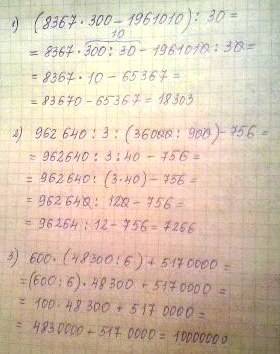 1) (8367 · 300 − 1961010) : 30 =
10
= 8367 · 300 : 30 − 1961010 : 30 =
= 8367 · 10 − 65367 =
= 83670 − 65367 = 18303
2) 962 640 : 3 : (36000 : 900) − 756 =
= 962640 : 3 : 40 − 756 =
= 962640 : (3 · 40) − 756 =
= 962640 : 120 − 756 =
= 96264 : 12 − 756 = 7266
3) 600 · (48300 : 6) + 5170000 =
= (600 : 6) · 48300 + 5170000 =
= 100 · 48 300 + 517 0000 =
= 4830000 + 517 0000 = 10000000